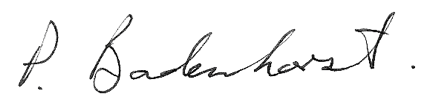 P. Badenhorst.